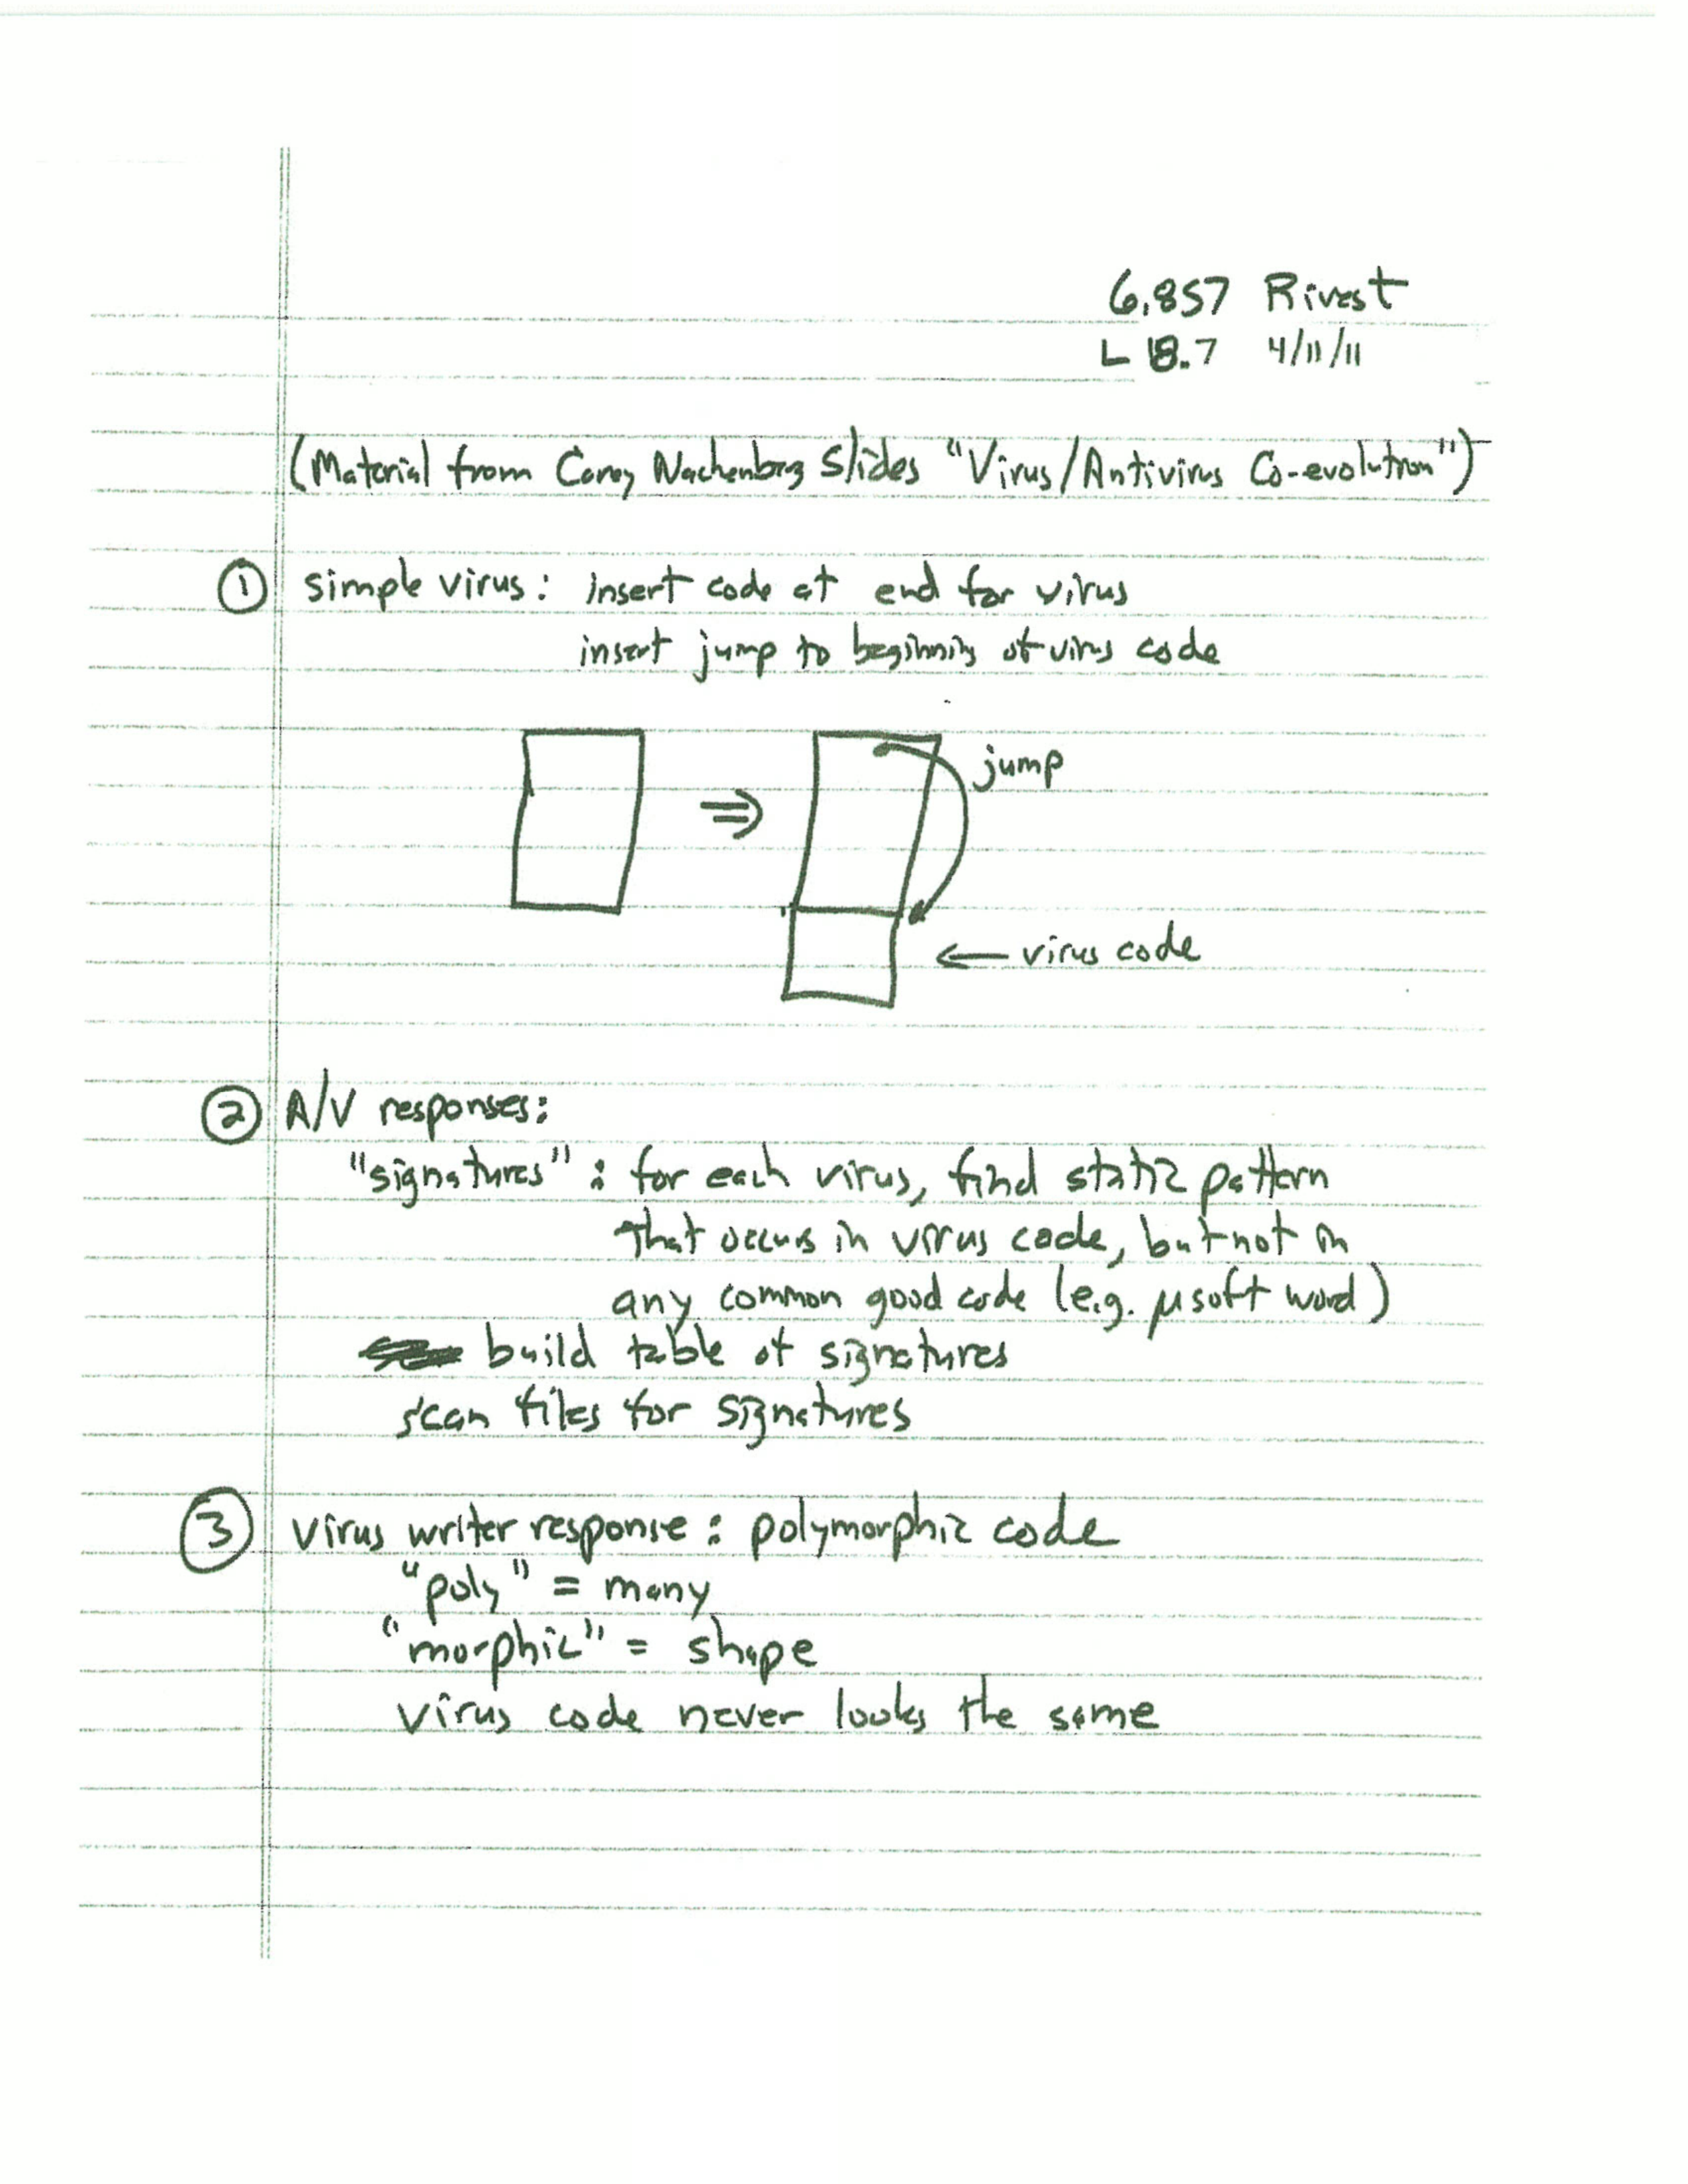 6.857 Rivest
L18.7 4/11/11
(Material from Carey Nachenberg Slides "Virus/Antivirus Co-evolution")
① simple virus: insert code at end for virus
insert jump to beginning of virus code
jump
⇒
← virus code
② A/V responses:
"signatures": for each virus, find static pattern
that occurs in virus code, but not in
any common good code (e.g. μsoft word)
build table of signatures
scan files for signatures
③ virus writer response: polymorphic code
"poly" = many
"morphic" = shape
virus code never looks the same